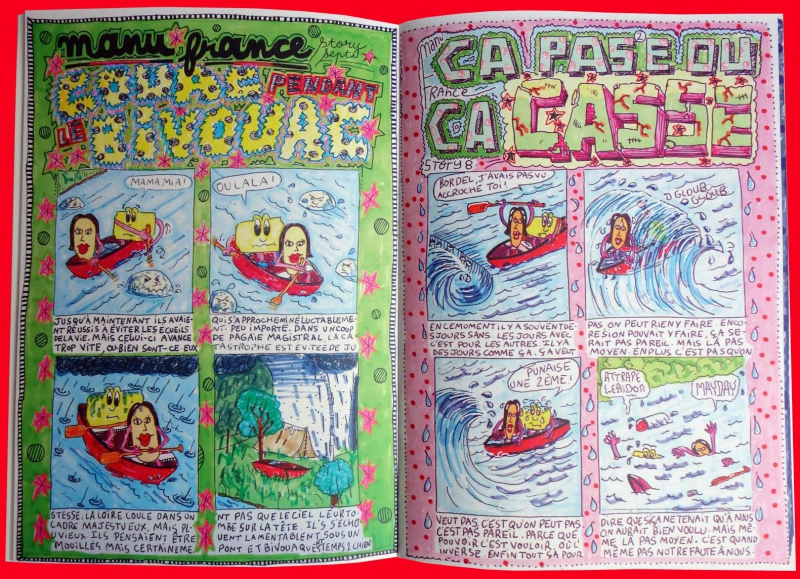 manu france
story
sept
COUAC
PENDANT
LE
BIVOUAC
MAMA MIA!
OULALA!
JUSQU'À MAINTENANT ILS AVAIE-
NT RÉUSSIS À ÉVITER LES ECUEILS
DE LA VIE. MAIS CELUI-CI AVANCE
TROP VITE, OU BIEN SONT-CE EUX
QUI S'APPROCHE INÉLUCTABLEME-
NT. PEU IMPORTE. DANS UN COUP
DE PAGAIE MAGISTRAL, LA CA
TASTROPHE EST EVITEE DE JU
STESSE. LA LOIRE COULE DANS UN
CADRE MAJESTUEUX, MAIS PL-
UVIEUX. ILS PENSAIENT ÊTRE
MOUILLÉS MAIS CERTAINEME-
NT PAS QUE LE CIEL LEUR TO-
MBE SUR LA TÊTE. ILS S'ÉCHO
UENT LAMENTABLEMENT SOUS UN
PONT ET BIVOUAQUE TEMPS 2 CHIEN
manu
FRANCE
ÇA PASE OU
ÇA CASSE
STORY 8
BORDEL, J'AVAIS PAS VU,
ACCROCHE TOI!
GLOUB
GLOUB
EN CE MOMENT IL Y A SOUVENT DE-
S JOURS SANS. LES JOURS AVEC
C'EST POUR LES AUTRES. IL Y A
DES JOURS COMME ÇA. ÇA VEUT
PAS ON PEUT RIEN Y FAIRE. ENCO-
RE SI ON POUVAIT Y FAIRE, ÇA SE-
RAIT PAS PAREIL. MAIS LÀ PAS
MOYEN. EN PLUS C'EST PAS QU'ON
PUNAISE
UNE 2ÈME!
ATTRAPE
LE BIDON
MAYDAY
VEUT PAS C'EST QU'ON PEUT PAS
C'EST PAS PAREIL. PARCE QUE
POUVOIR C'EST VOULOIR, OU L'
INVERSE. ENFIN TOUT ÇA POUR
DIRE QUE SI ÇA NE TENAIT QU'À NOUS
ON AURAIT BIEN VOULU. MAIS MÊ
ME LÀ PAS MOYEN. C'EST QUAND
MÊME PAS NOTRE FAUTE À NOUS-